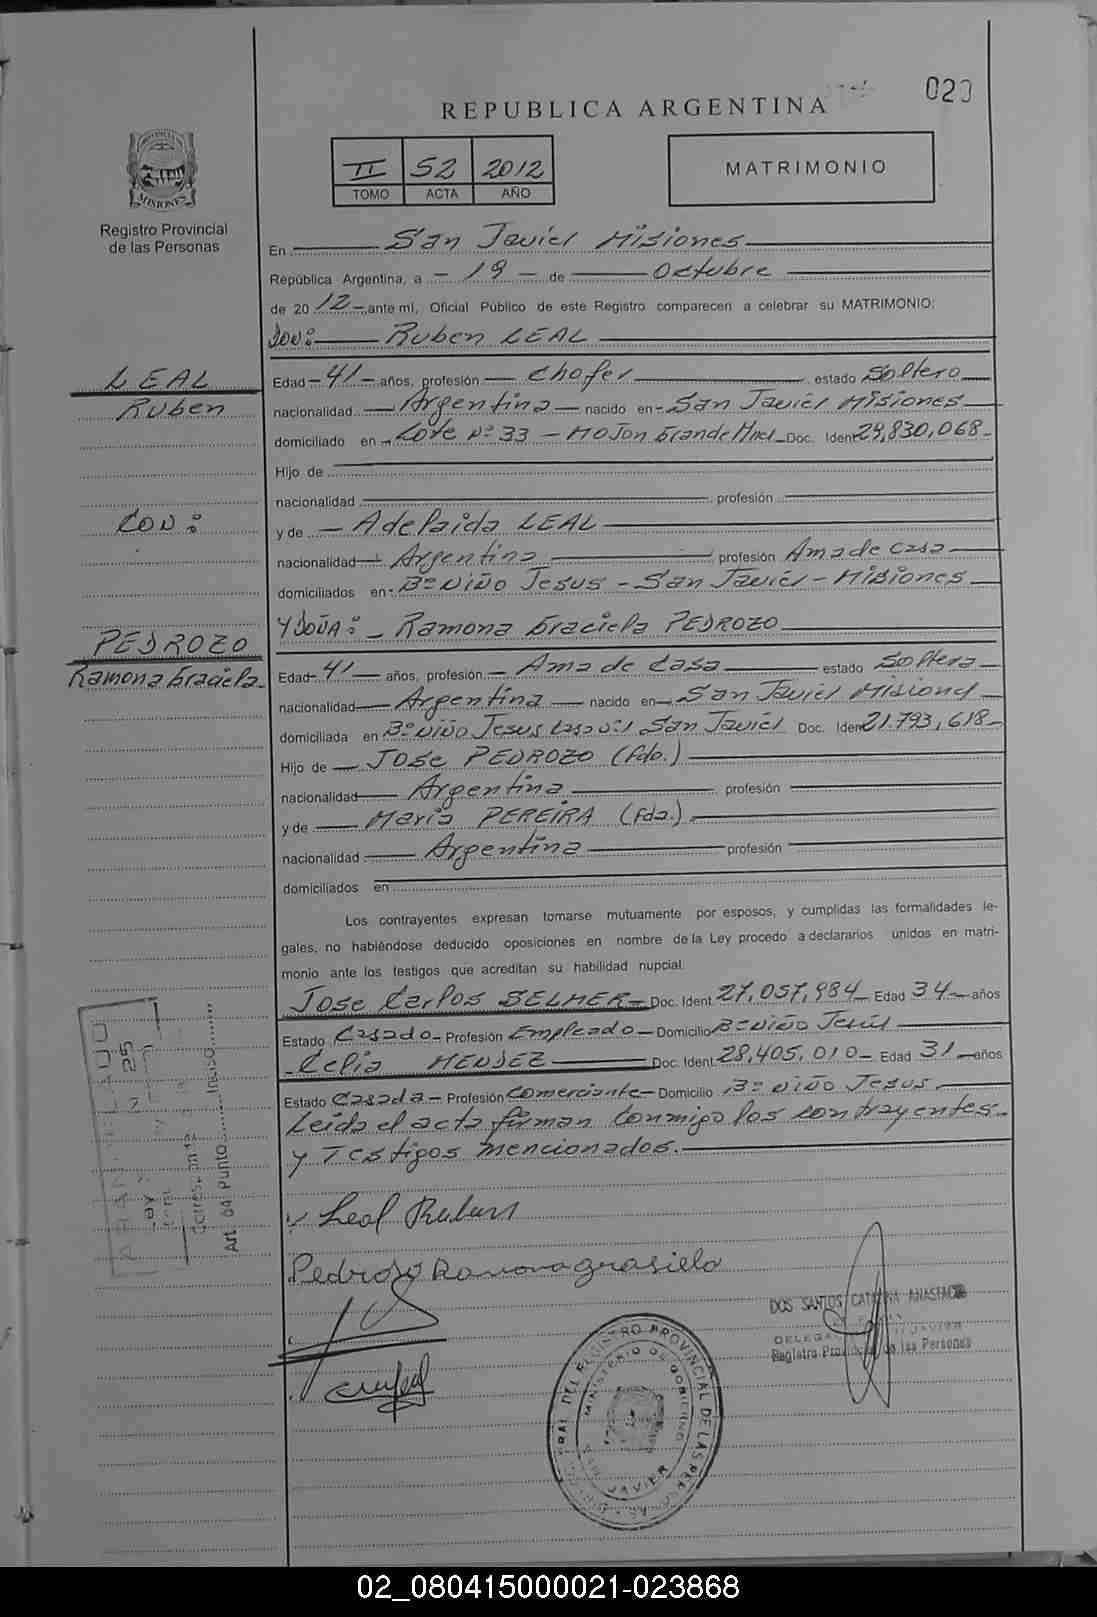 020
REPUBLICA ARGENTINA
II 52 2012
TOMO ACTA AÑO
MATRIMONIO
PROVINCIA DE
MISIONES
Registro Provincial
de las Personas
En San Javier Misiones
República Argentina, a - 19 - de Octubre
de 2012 ante mí, Oficial Público de este Registro comparecen a celebrar su MATRIMONIO:
DON: Ruben LEAL
LEAL
Ruben
CON:
PEDROZO
Ramona Graciela
Edad - 41 - años, profesión Chofer estado Soltero
nacionalidad Argentina nacido en San Javier Misiones
domiciliado en Lote Nº 33 - Mojon Grande Mnes Doc. Ident 29,830,068
Hijo de
nacionalidad profesión
y de Adelaida LEAL
nacionalidad Argentina profesión Ama de casa
domiciliados en Bº Niño Jesus - San Javier - Misiones
Y DOÑA: Ramona Graciela PEDROZO
Edad 41 años, profesión Ama de Casa estado Soltera
nacionalidad Argentina nacido en San Javier Misiones
domiciliada en Bº Niño Jesus San Javier Doc. Ident 21.793,618
Hijo de Jose PEDROZO (fdo.)
nacionalidad Argentina profesión
y de Maria PEREIRA (fda.)
nacionalidad Argentina profesión
domiciliados en
Los contrayentes expresan tomarse mutuamente por esposos, y cumplidas las formalidades le-
gales, no habiéndose deducido oposiciones en nombre de la Ley procedo a declararlos unidos en matri-
monio ante los testigos que acreditan su habilidad nupcial.
Jose Carlos SELMER Doc. Ident 27,057,984 Edad 34 años
Estado Casado Profesión Empleado Domicilio Bº Niño Jesús
Celia MENDEZ Doc. Ident. 28,405,010 Edad 31 años
Estado Casada Profesión Comerciante Domicilio Bº Niño Jesus
Leida el acta firman conmigo los contrayentes
y Testigos mencionados.
Art. 64 Punto Inciso
Leal Ruben
Pedroso Ramona grasiela
DOS SANTOS CATALINA
Registro Provincial de las Personas
DEL REGISTRO PROVINCIAL DE LAS PERSONAS
MINISTERIO DE GOBIERNO
JAVIER
02_080415000021-023868